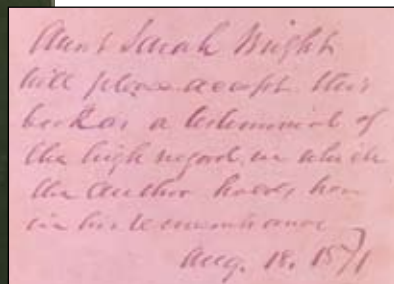 Aunt Sarah Wright
will please accept this
book as a testimonial of
the high regard in which
the author holds her
in his remembrance
Aug. 18, 1871